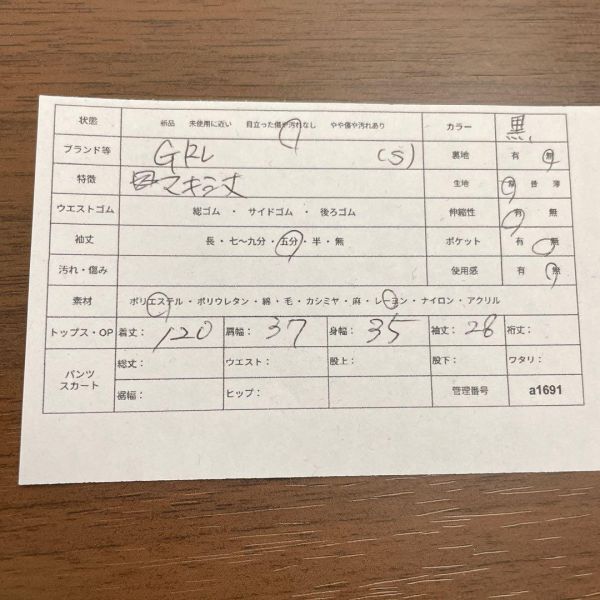 状態 新品 未使用に近い 目立った傷や汚れなし やや傷や汚れあり カラー 黒
ブランド等 GRL (S) 裏地 有 無
特徴 マキシ丈 生地 厚 普 薄
ウエストゴム 総ゴム ・ サイドゴム ・ 後ろゴム 伸縮性 有 無
袖丈 長・七〜九分・五分・半・無 ポケット 有 無
汚れ・傷み 使用感 有 無
素材 ポリエステル・ポリウレタン・綿・毛・カシミヤ・麻・レーヨン・ナイロン・アクリル
トップス・OP 着丈: 120 肩幅: 37 身幅: 35 袖丈: 28 裄丈:
パンツ スカート 総丈: ウエスト: 股上: 股下: ワタリ:
裾幅: ヒップ: 管理番号 a1691